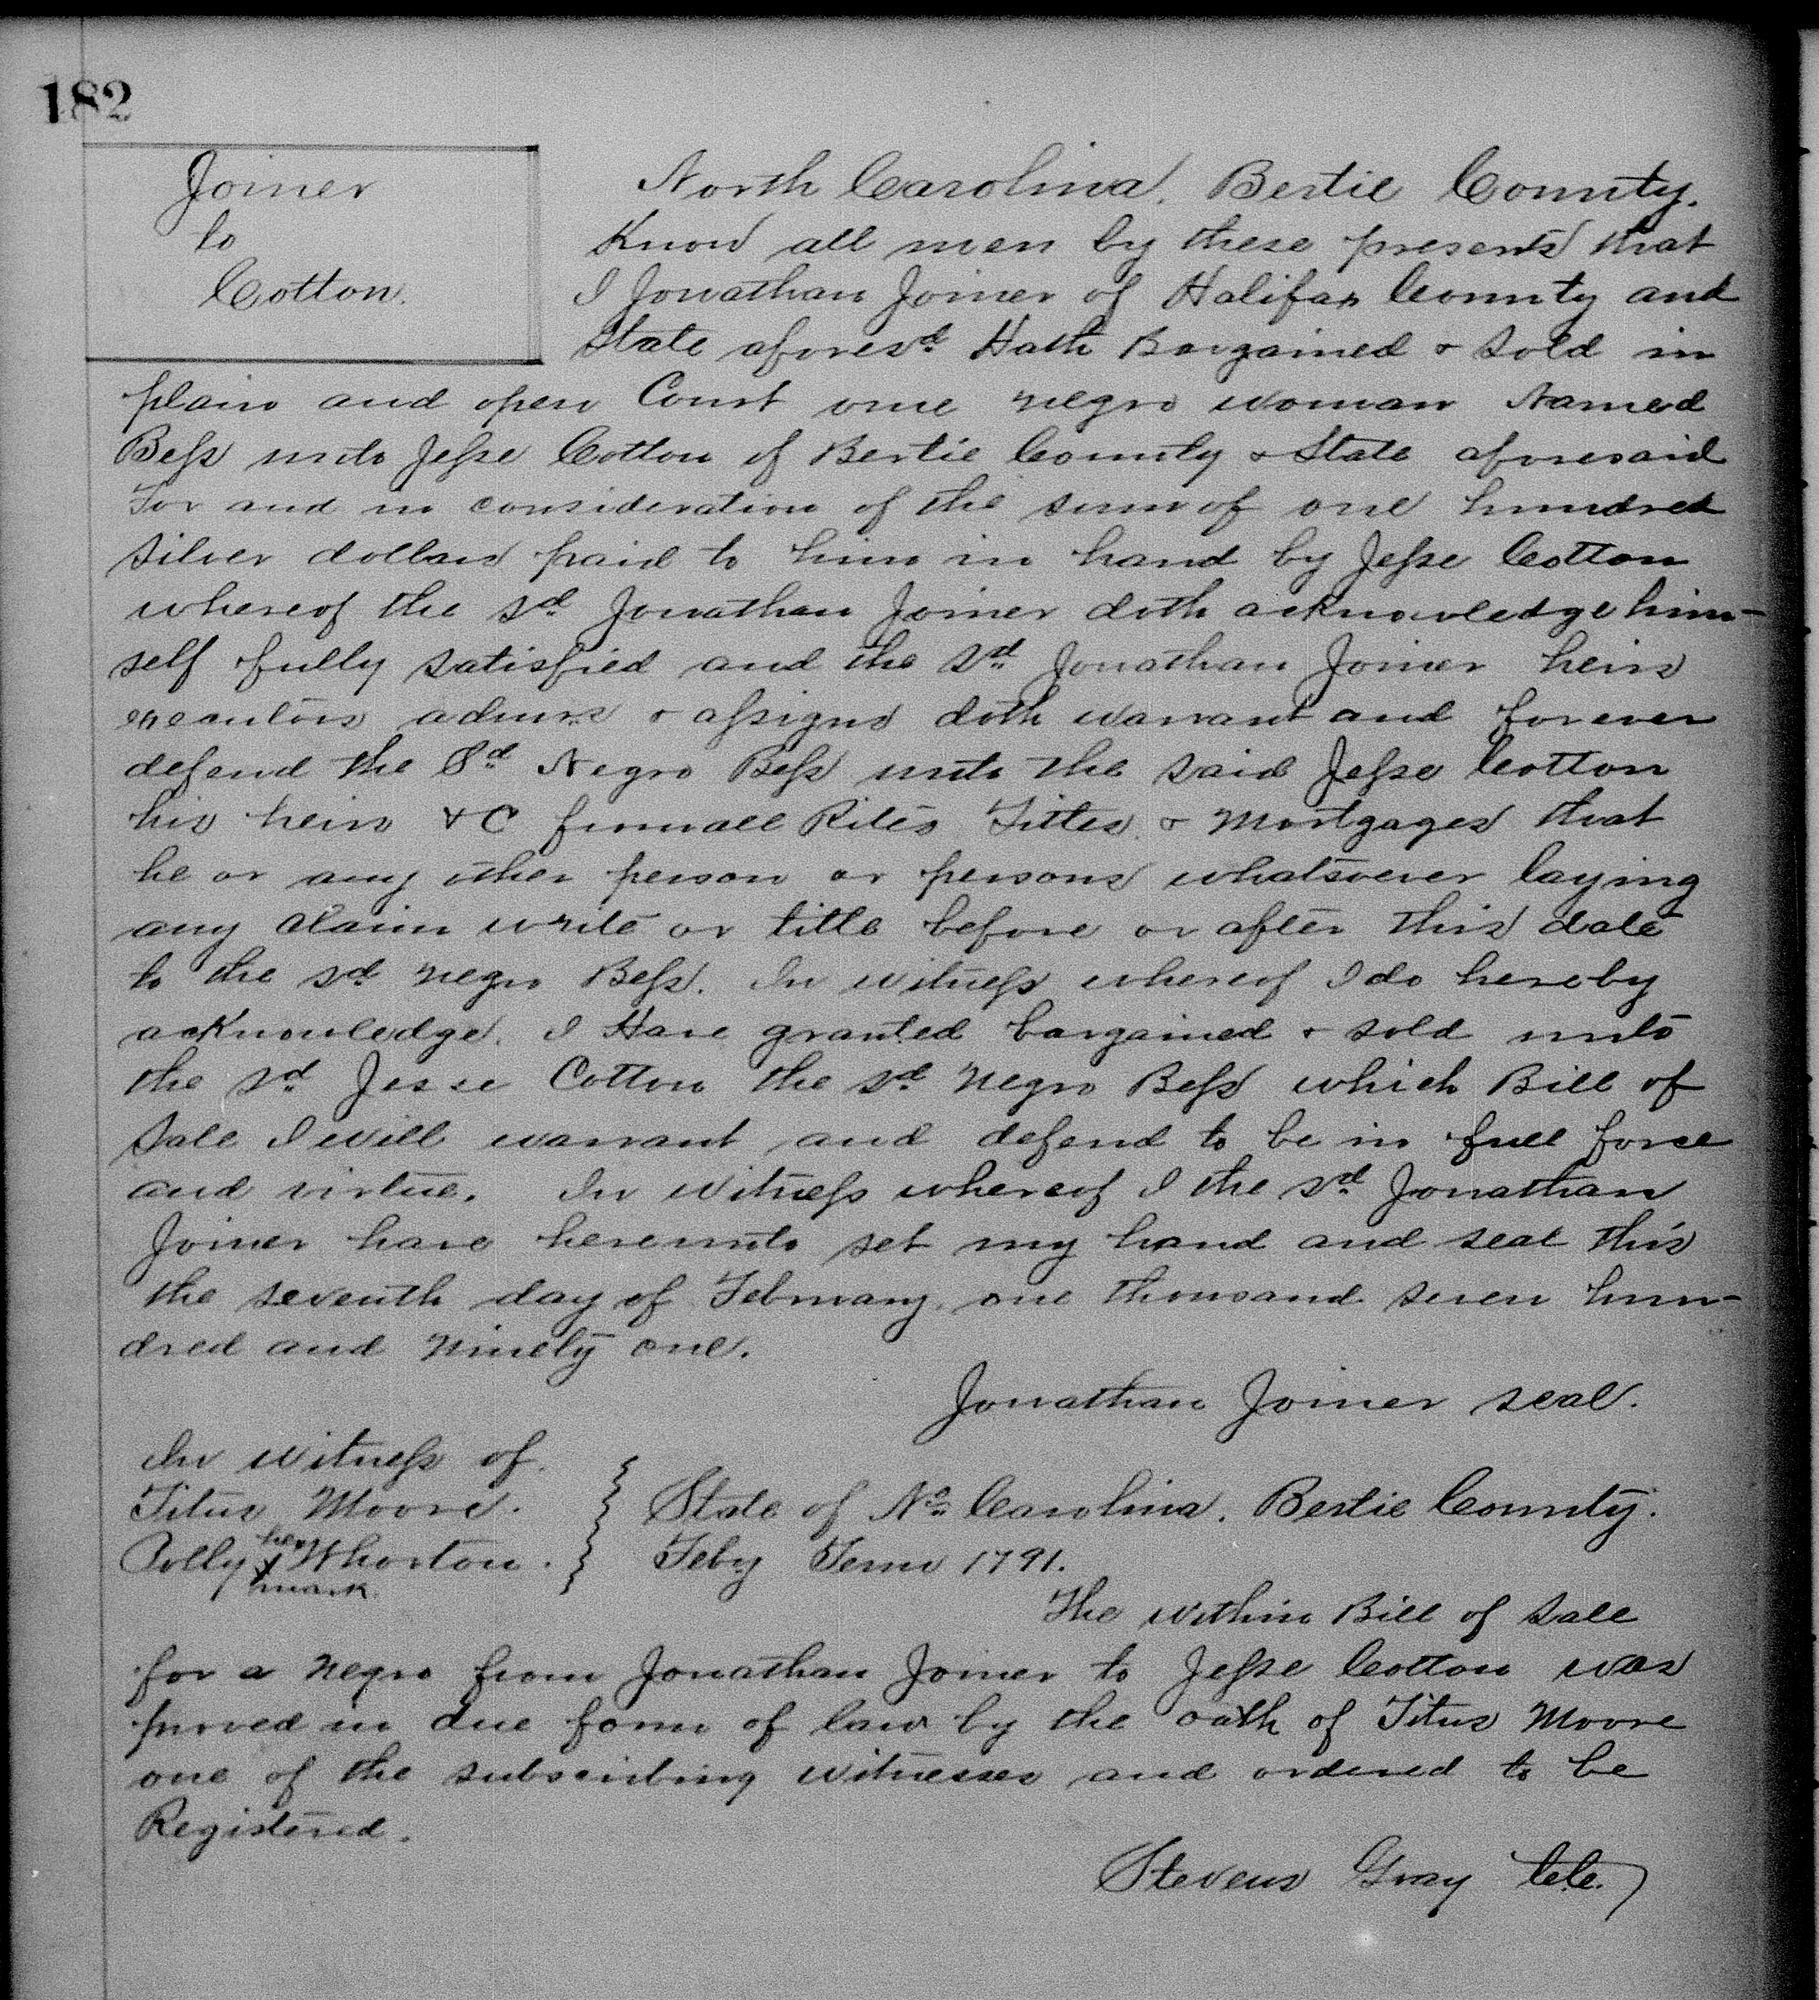 182
Joiner
to
Cotton.
North Carolina. Bertie County.
Know all men by these presents that
I Jonathan Joiner of Halifax County and
State aforesd Hath Bargained & Sold in
plain and open Court one negro woman Named
Bess unto Jesse Cotton of Bertie County & State aforesaid
For and in consideration of the sum of one hundred
silver dollars paid to him in hand by Jesse Cotton
whereof the sd Jonathan Joiner doth acknowledge him-
self fully satisfied and the sd Jonathan Joiner heirs
executors admrs & assigns doth warrant and forever
defend the Sd Negro Bess unto the said Jesse Cotton
his heirs &C from all Rites Titles & Mortgages that
he or any other person or persons whatsoever laying
any claim write or title before or after this date
to the sd negro Bess. In witness whereof I do hereby
acknowledge. I Have granted bargained & sold unto
the sd Jesse Cotton the sd negro Bess which Bill of
Sale I will warrant and defend to be in full force
and virtue. In witness whereof I the sd Jonathan
Joiner have hereunto set my hand and seal this
the seventh day of February one thousand seven hun-
dred and ninety one.
Jonathan Joiner seal.
In witness of
Titus Moore.
Polly her x mark Whorton.
State of No Carolina. Bertie County.
Feby Term 1791.
The within Bill of Sale
for a negro from Jonathan Joiner to Jesse Cotton was
proved in due form of law by the oath of Titus Moore
one of the subscribing witnesses and ordered to be
Registered.
Stevens Gray